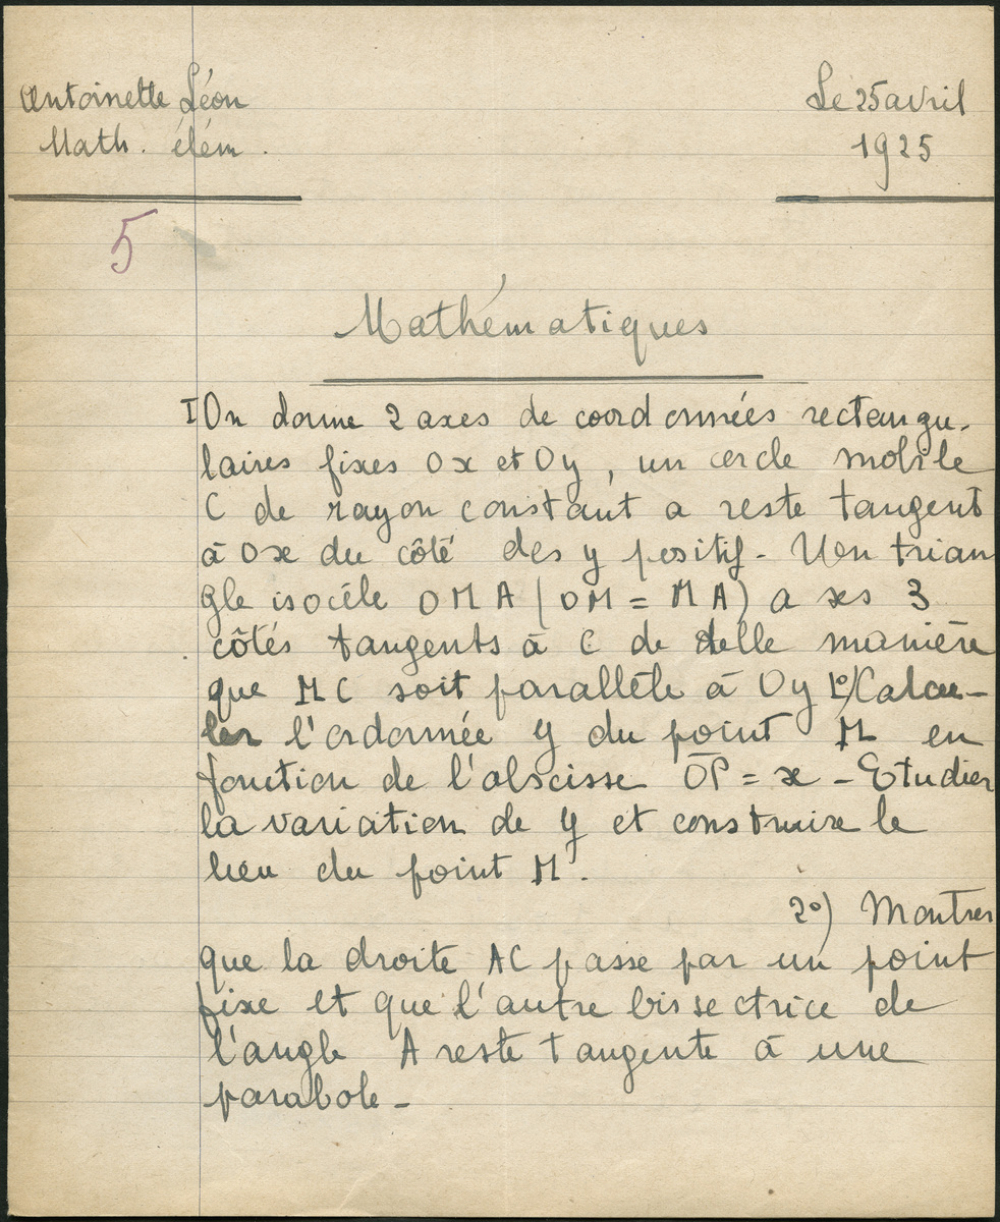 Antoinette Léon
Le 25 avril
Math. élém.
1925
5
Mathématiques
I On donne 2 axes de coordonnées rectangu-
laires fixes Ox et Oy, un cercle mobile
C de rayon constant a reste tangent
à Ox du côté des y positif - Uen trian
gle isocèle OMA (OM = MA) a ses 3
côtés tangents à C de telle manière
que MC soit parallèle à Oy 1º) Calcu-
ler l'ordonnée y du point M en
fonction de l'abscisse OP = x - Etudier
la variation de y et construire le
lieu du point M.
2º) Montrer
que la droite AC passe par un point
fixe et que l'autre bissectrice de
l'angle A reste tangente à une
parabole -